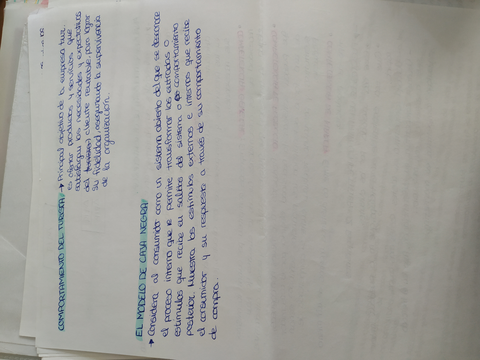 COMPORTAMIENTO DEL TURISTA → Principal objetivo de la empresa tur.
es ofertar productos y servicios que
satisfagan las necesidades y expectativas
del cliente para lograr
su fidelidad, asegurando la supervivencia
de la organización.
EL MODELO DE CAJA NEGRA
→ Considera al consumidor como un sistema abierto del que se desconoce
el proceso interno que le permite transformar las entradas o
estímulos que recibe en salidas del sistema o comportamiento
posterior. Muestra los estímulos externos e internos que recibe
el consumidor y su respuesta a través de su comportamiento
de compra.